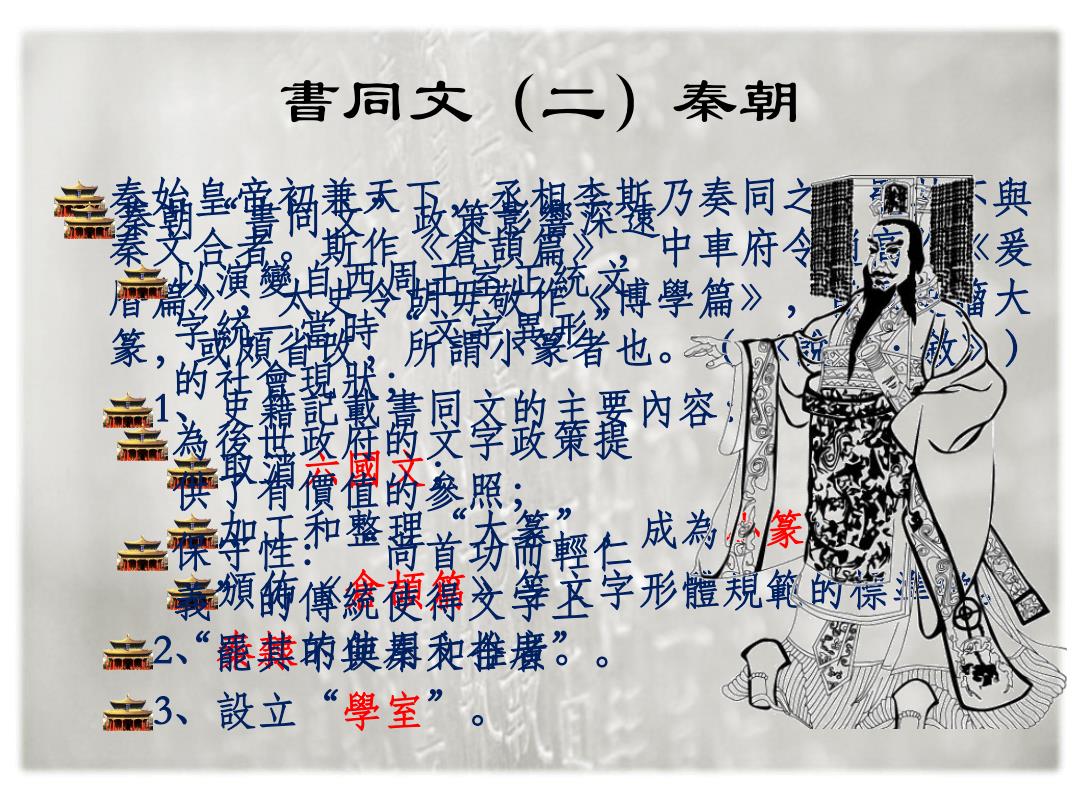 書同文（二）秦朝
秦始皇帝初兼天下，丞相李斯乃奏同之 不與
秦文合者。斯作《倉頡篇》，中車府令 《爰
曆篇》，太史令胡毋敬作《博學篇》， 籀大
篆，或頗省改，所謂小篆者也。（《說 ·敘》）
1、史籍記載書同文的主要內容：
取消六國文；
加工和整理“大篆”，成為小篆
頒佈《倉頡篇》等文字形體規範的標準
2、秦隸的使用和推廣。
3、設立“學室”。
秦朝“書同文”政策影響深遠
以演變自西周王室正統文
字統一當時“文字異形”
的社會現狀；
為後世政府的文字政策提
供了有價值的參照；
保守性：“尚首功而輕仁
義”的傳統使得文字上
“罷其不與秦文合者”。